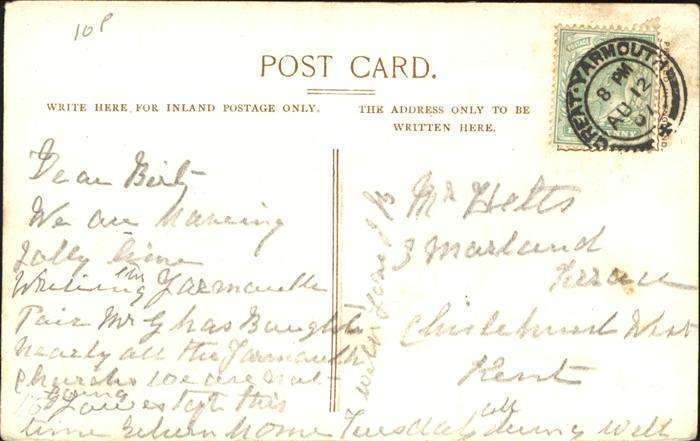 10P
POST CARD.
WRITE HERE FOR INLAND POSTAGE ONLY.
THE ADDRESS ONLY TO BE
WRITTEN HERE.
GREAT YARMOUTH
8 PM
AU 12
07
Dear Berty
We are having
Jolly time
Writing this Yarmouth
Pair Mr G has Bought
nearly all the Yarmouth
Churchs we are not
going
to Lowestoft this
time return home Tuesday
all
well
with love
Mr Holts
3 Marland
Terrace
Chislehurst West
Kent